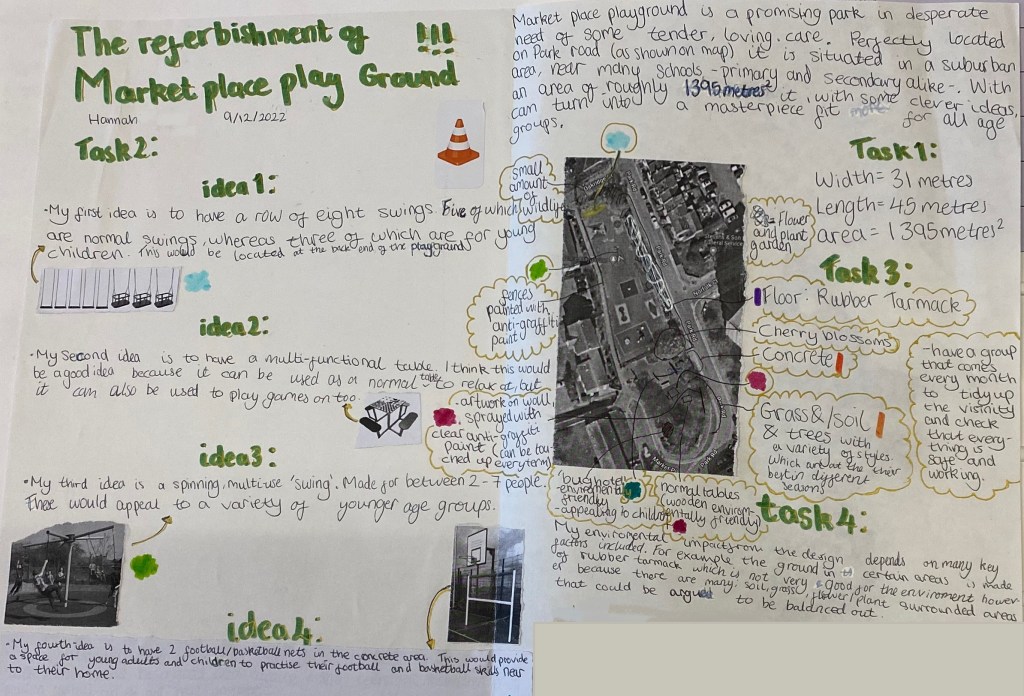 The referbishment of !!!
Market place play Ground
Hannah 9/12/2022
Task2:
idea1:
·My first idea is to have a row of eight swings. Five of which
are normal swings, whereas three of which are for young
children. This would be located at the back end of the playground
idea2:
·My second idea is to have a multi-functional table. I think this would
be a good idea because it can be used as a normal table to relax at, but
it can also be used to play games on too.
idea3:
·My third idea is a spinning, multiuse 'swing'. Made for between 2-7 people.
These would appeal to a variety of younger age groups.
idea4:
·My fourth idea is to have 2 football/basketball nets in the concrete area. This would provide
a space for young adults and children to practise their football and basketball skills near
to their home.
Market place playground is a promising park in desperate
need of some tender, loving, care. Perfectly located
on Park road (as shown on map) it is situated in a suburban
area, near many schools -primary and secondary alike-. With
an area of roughly 1395metres² it, with some clever ideas,
can turn into a masterpiece fit for all age
groups.
Task1:
Width= 31 metres
Length= 45 metres
area = 1395metres²
small
amount
of
wildlife
flower
and plant
garden
fences
painted with
anti-graffiti
paint
artwork on wall,
sprayed with
clear anti-graffiti
paint (can be tou-
ched up every term)
Task3:
Floor: Rubber Tarmack
Cherry blossoms
Concrete
Grass&/soil
& trees with
a variety of styles.
Which are at their
best in different
seasons
-have a group
that comes
every month
to tidy up
the visinity
and check
that every-
thing is
safe and
working.
'bug hotel'
environmentally
friendly
appealing to children
normal tables
(wooden environm-
entally friendly)
task4:
My enviromental impacts from the design depends on many key
factors included. For example the ground in certain areas is made
of rubber tarmack which is not very good for the enviroment howev-
er because there are many soil, grass, flower/plant surrounded areas
that could be argued to be balanced out.